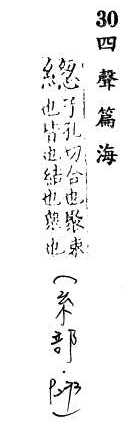 30 四聲篇海
緫 子孔切合也聚束
也皆也結也 也
(糸部·P273)